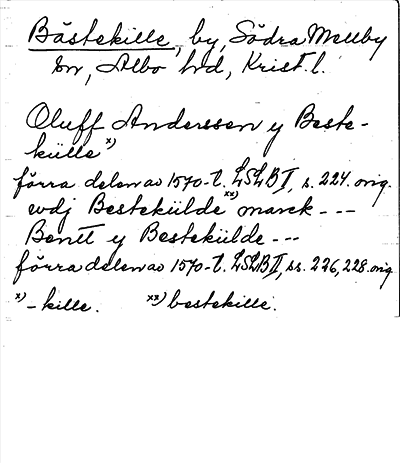 Bästekille, by, Södra Mellby
sn, Albo hd, Krist. l.
Oluff Anderssen y Beste-
külle x)
förra delen av 1570-t. LSLB I, s. 224. orig.
wdj Bestekülde xx) marck - - -
Bentt y Bestekülde - - -
förra delen av 1570-t. LSLB II, ss. 226, 228. orig.
x) - kille. xx) bestekille.